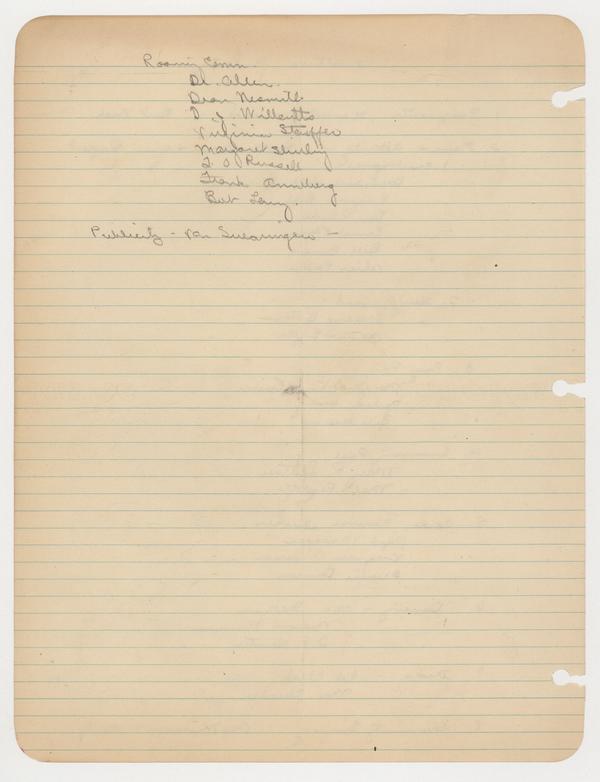 Roaming Comm.
Dr. Allen.
Dean Nesmith
D. J. Willetts
Virginia Stauffer
Margaret Shirley
T. O. Russell
Frank Anneberg
Bob Lang.
Publicity - Van Swearingen -